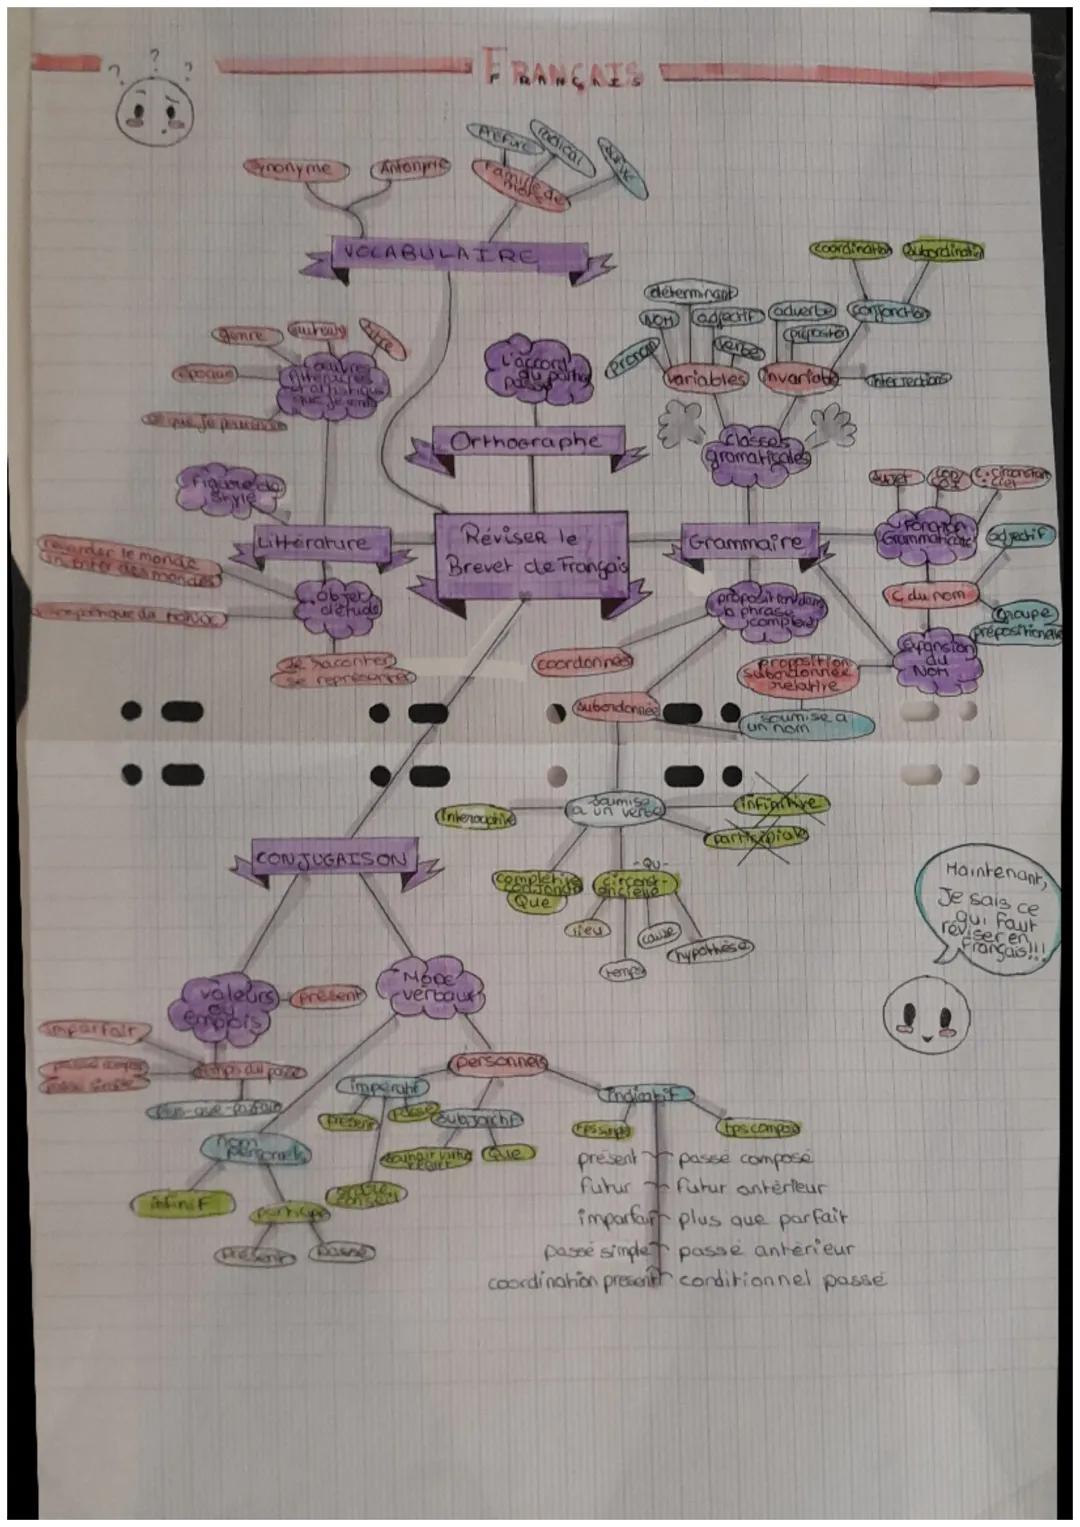 FRANÇAIS
FRANÇAIS
? ? ?
Synonyme
Antonyme
radical
Famille de
mots
VOCABULAIRE
coordination
subordination
déterminant
NOM
adjectif
adverbe
conjonction
pronom
verbe
préposition
variables
invariable
interjections
genre
auteur
titre
époque
œuvres
littéraires
et artistiques
L'accord
du participe
passé
Orthographe
Classes
gramaticales
Figure de
Style
Littérature
Réviser le
Brevet de Français
Grammaire
sujet
COD
c. circonstan
ciel
Fonction
Grammaticale
adjectif
C du nom
Groupe
prépositionnel
regarder le monde
objet
d'étude
Se raconter
se représenter
proposition dans
la phrase
complexe
coordonnées
subordonnée
proposition
subordonnée
relative
soumise a
un nom
Expansion
du
Nom
soumise
a un verbe
Interrogative
infinitive
participiale
complétive
conjonctive
Que
-Qu-
circonst-
ancielle
lieu
temps
cause
hypothèse
CONJUGAISON
Maintenant,
Je sais ce
qui faut
réviser en
Français!!!
valeurs
ou
emplois
présent
Mode
verbaux
imparfait
passé composé
passé simple
temps du passé
plus-que-parfait
personnels
impératif
présent
passé
subjonctif
Que
indicatif
tps simple
tps composé
non
personnels
infinitif
participe
présent
passé
présent passé composé
futur futur antérieur
imparfait plus que parfait
passé simple passé antérieur
coordination présent conditionnel passé